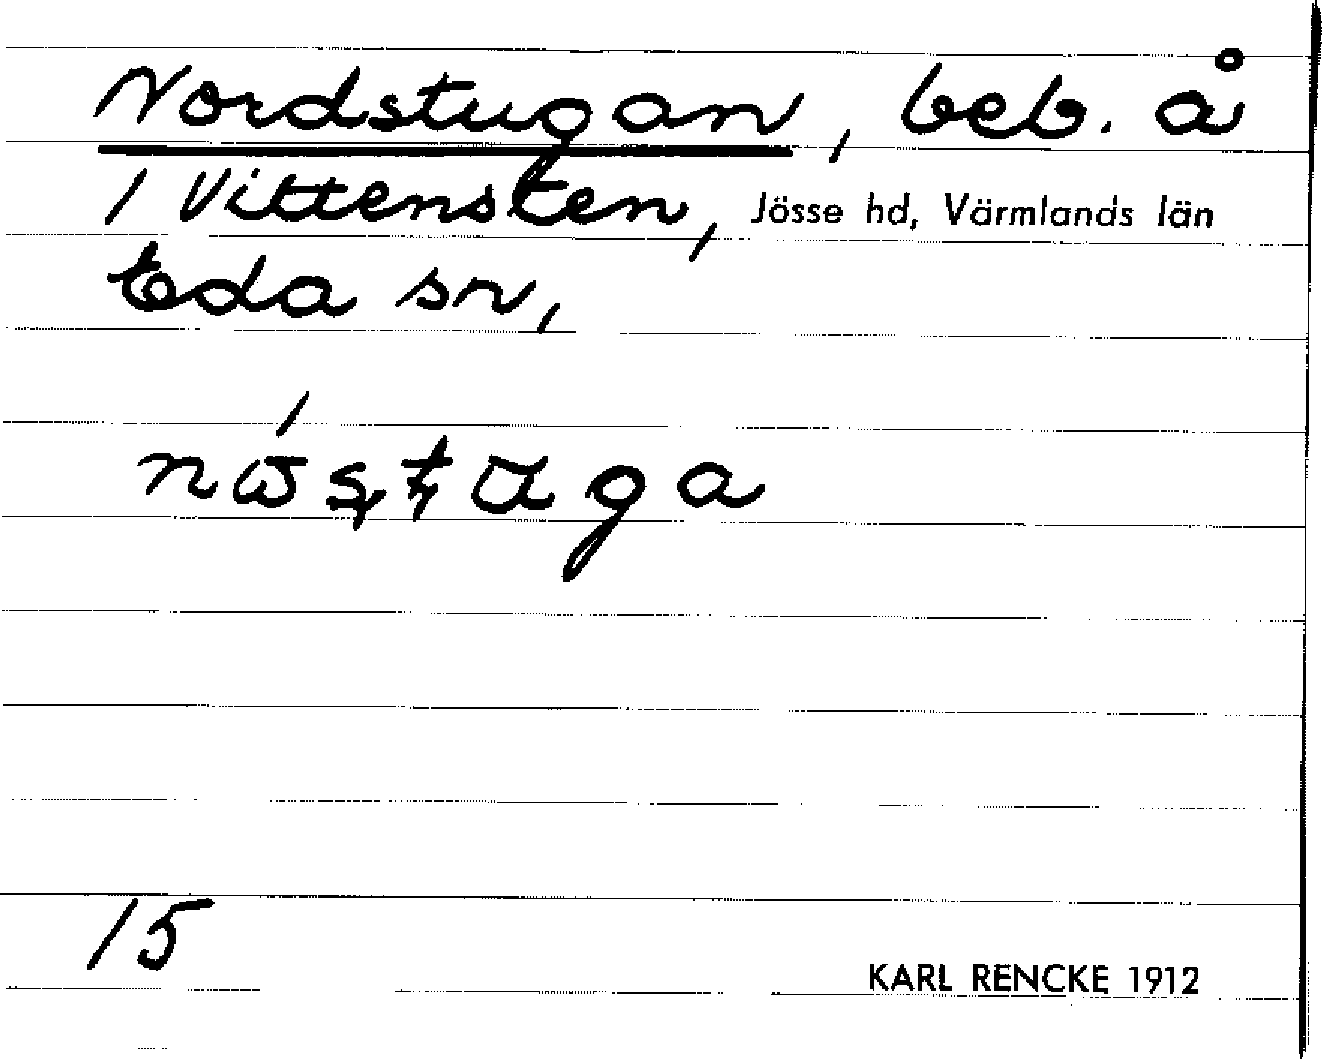 Nordstugan, beb. å
1 Vittensten, Jösse hd, Värmlands län
Eda sn,
15
KARL RENCKE 1912